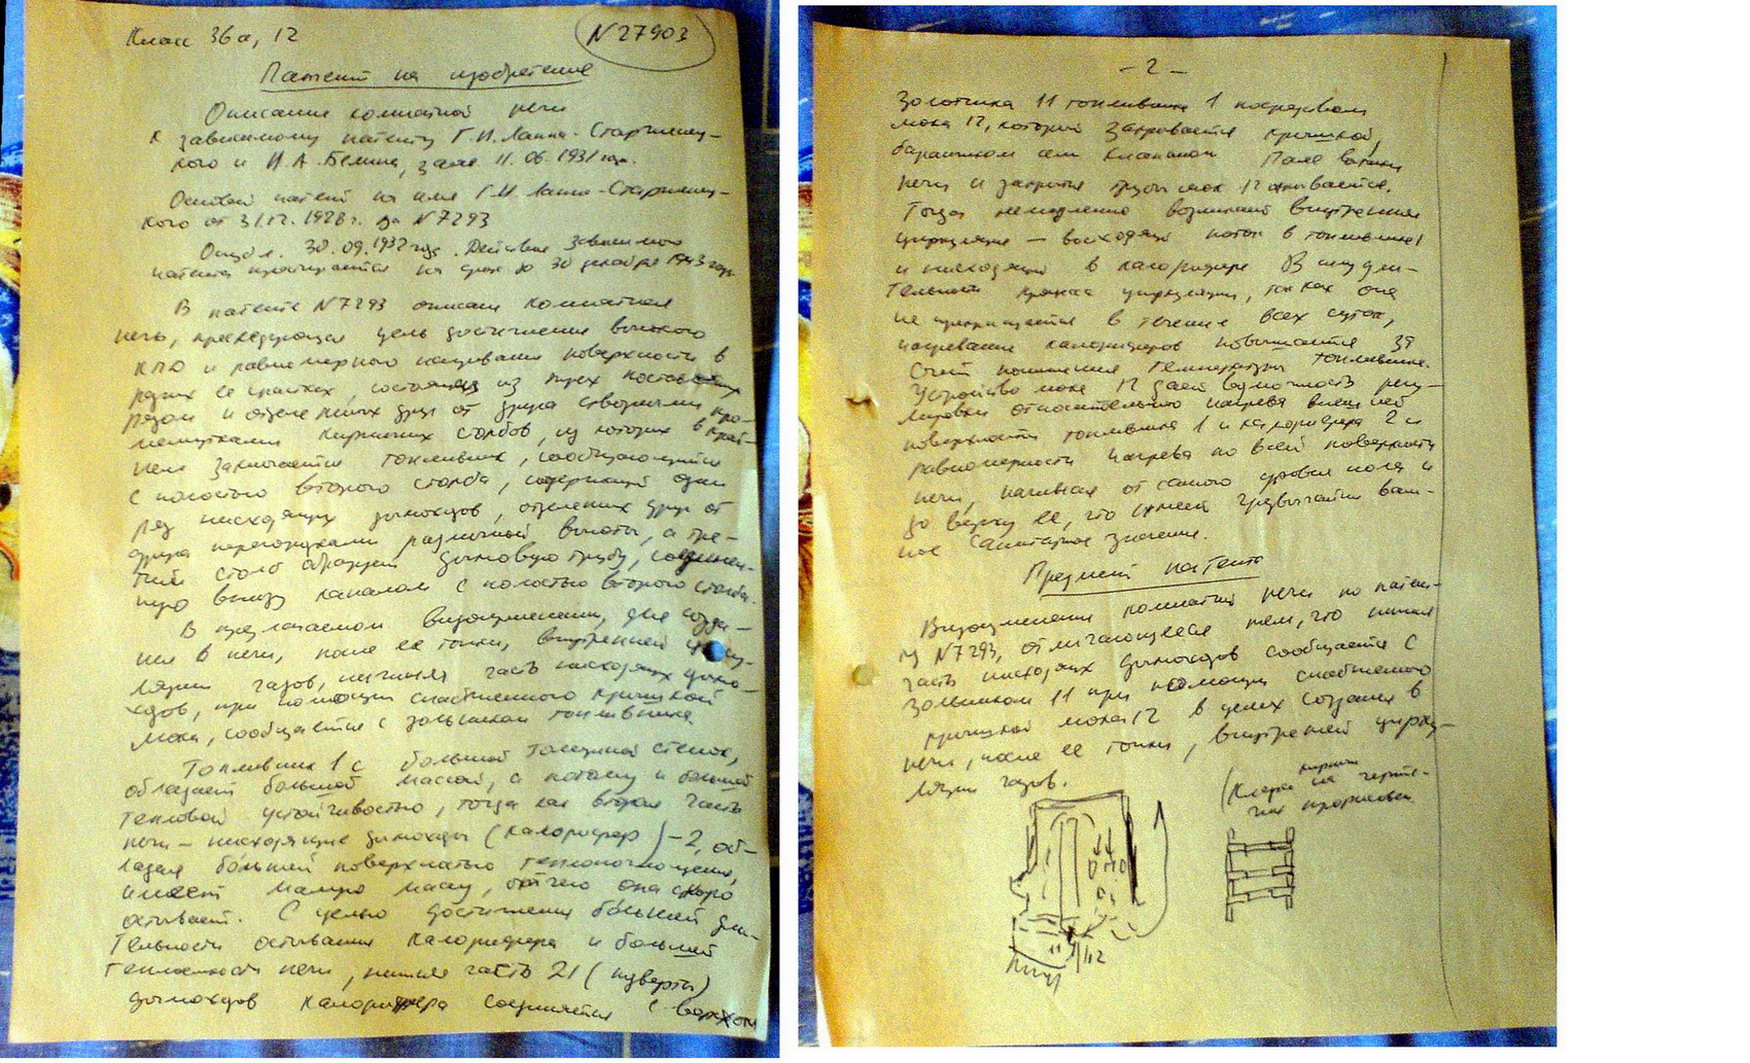 Класс 36а, 12
N 27903
Патент на изобретение
Описание комнатной печи
к зависимому патенту Г.И. Лаппа-Старженец-
кого и И.А. Белина, заяв. 11.06.1931 года.
Основной патент на имя Г.И. Лаппа-Старженец-
кого от 31.12.1928 г. за N 7293
Опубл. 30.09.1932 года. Действие зависимого
патента простирается на срок до 30 декабря 1943 года
В патенте N 7293 описана комнатная
печь, преследующая цель достижения высокого
КПД и равномерного нагревания поверхности в
разных ее участках, состоящая из трех поставленных
рядом и отделенных друг от друга створными про-
межутками кирпичных столбов, из которых в край-
нем заключается топливник, сообщающийся
с полостью второго столба, содержащей один
ряд нисходящих дымоходов, отделенных друг от
друга перегородками различной высоты, а тре-
тий столб образует дымовую трубу, соединен-
ную внизу каналом с полостью второго столба.
В предлагаемом видоизменении, для созда-
ния в печи, после ее топки, внутренней цирку-
ляции газов, нижняя часть нисходящих дымо-
ходов, при помощи снабженного крышкой
люка, сообщается с зольником топливника.
Топливник 1 с большой толщиной стенок,
обладает большой массой, а потому и большой
тепловой устойчивостью, тогда как вторая часть
печи – нисходящие дымоходы (калорифер) – 2, об-
ладая большей поверхностью теплопоглощения,
имеет малую массу, отчего она скоро
остывает. С целью достижения большей дли-
тельности остывания калорифера и большей
теплоемкости печи, нижняя часть 21 (отверт)
дымоходов калорифера соединяется с верхом
– 2 –
золотника 11 топливника 1 посредством
люка 12, который закрывается крышкой,
барашком или клапаном. После топки
печи и закрытия трубы люк 12 открывается.
Тогда немедленно возникает внутренняя
циркуляция – восходящий поток в топливнике 1
и нисходящий в калорифере. Ввиду дли-
тельности процесса циркуляции, так как она
не прекращается в течение всех суток,
нагревание калориферов повышается за
счет понижения температуры топливника.
Устройство люка 12 дает возможность регу-
лировки относительного нагрева внешней
поверхности топливника 1 и калорифера 2 и
равномерности нагрева по всей поверхности
печи, начиная от самого уровня пола и
до верху ее, что имеет чрезвычайно важ-
ное санитарное значение.
Предмет патента
Видоизменение комнатной печи по патен-
ту N 7293, отличающееся тем, что нижняя
часть нисходящих дымоходов сообщается с
зольником 11 при помощи снабженного
крышкой люка 12 в целях создания в
печи, после ее топки, внутренней цирку-
ляции газов.
кирпич
на черте-
11
12